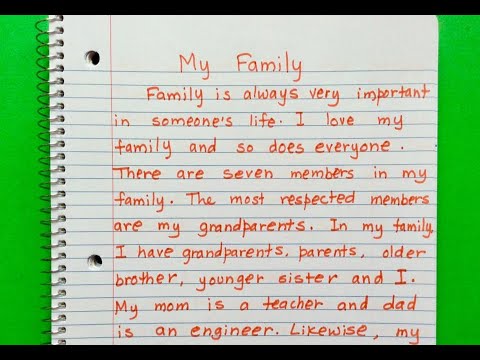 My Family
Family is always very important
in someone's life. I love my
family and so does everyone.
There are seven members in my
family. The most respected members
are my grandparents. In my family
I have grandparents, parents, older
brother, younger sister and I.
My mom is a teacher and dad
is an engineer. Likewise, my